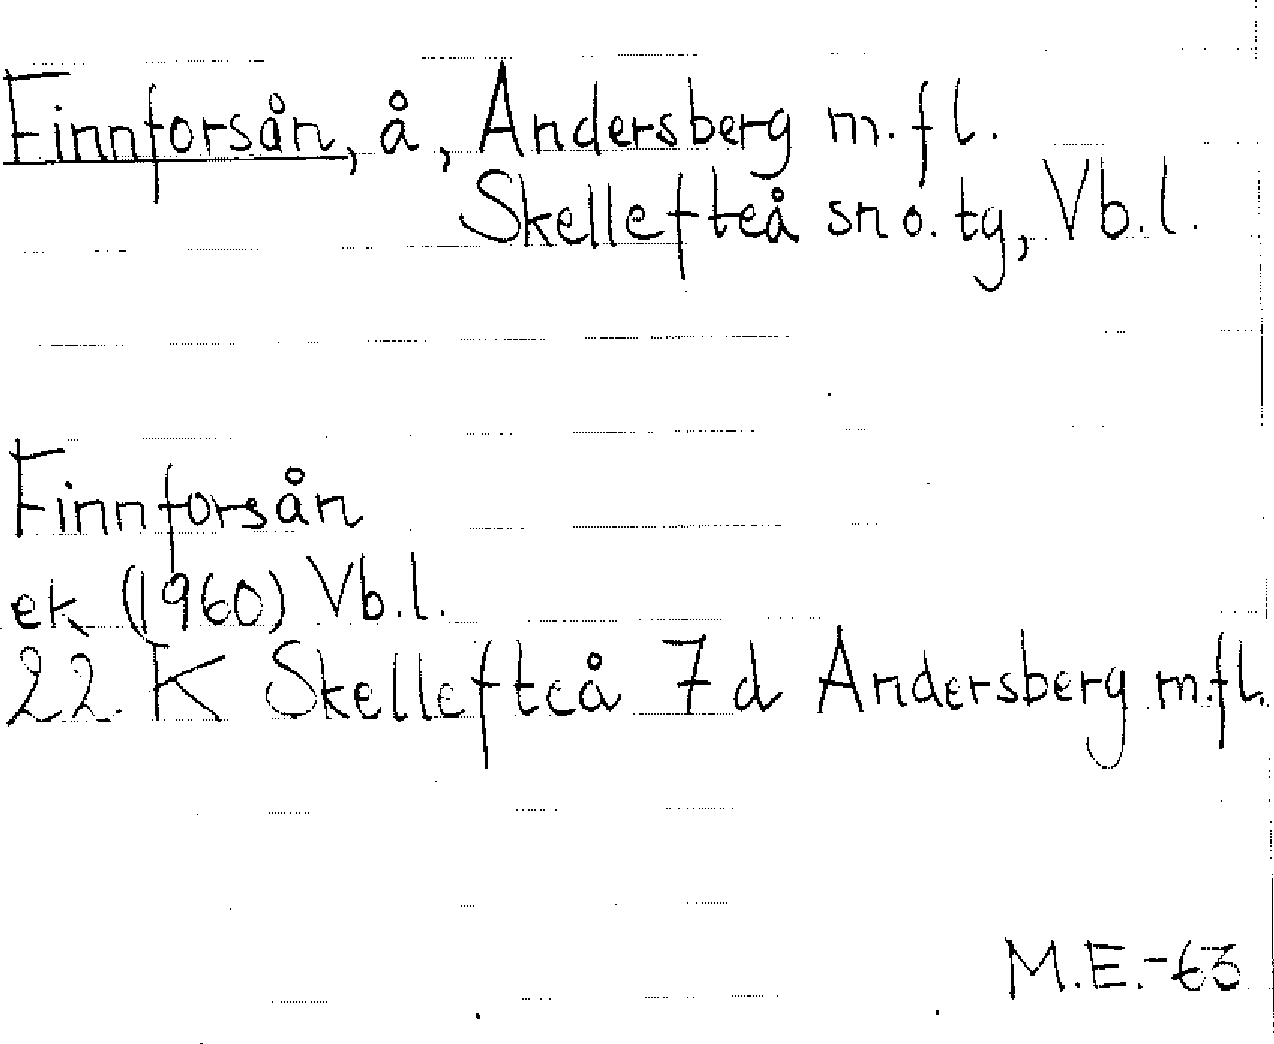 Finnforsån, å, Andersberg m.fl.
Skellefteå sn o. tg, Vb.l.
Finnforsån
ek (1960) Vb.l.
22 K Skellefteå 7d Andersberg m.fl.
M.E.-63